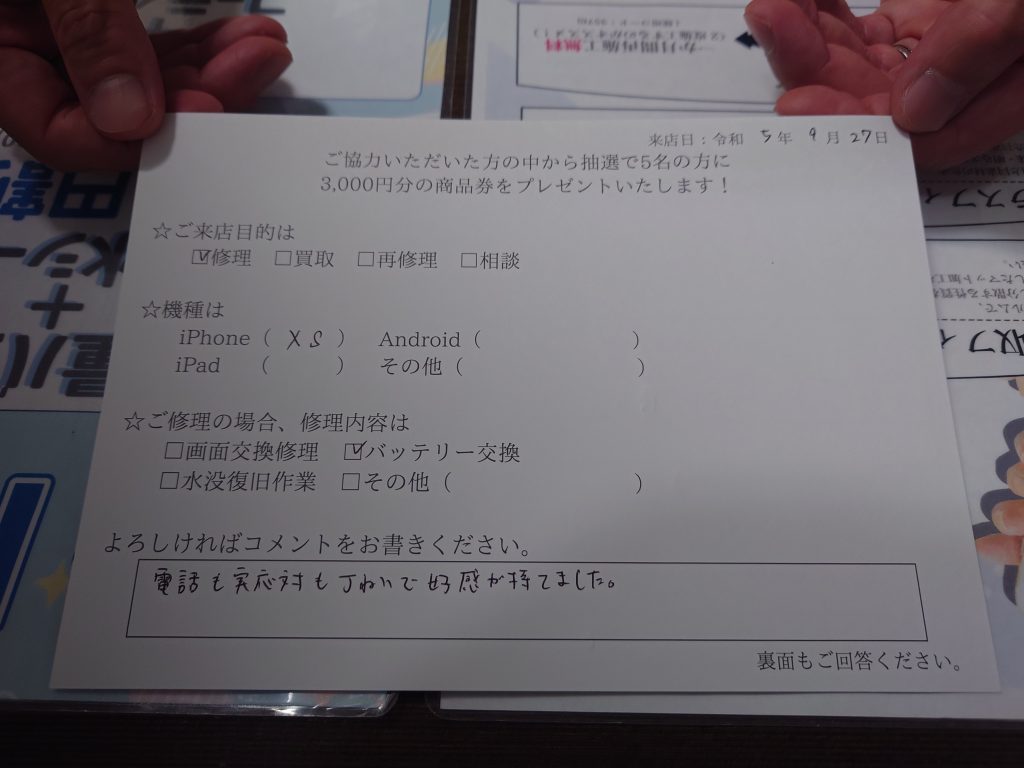 来店日：令和 5年 9月 27日
ご協力いただいた方の中から抽選で5名の方に
3,000円分の商品券をプレゼントいたします！
☆ご来店目的は
☑修理 □買取 □再修理 □相談
☆機種は
iPhone（ XS ） Android（ ）
iPad （ ） その他（ ）
☆ご修理の場合、修理内容は
□画面交換修理 ☑バッテリー交換
□水没復旧作業 □その他（ ）
よろしければコメントをお書きください。
電話も実応対も丁ねいで好感が持てました。
裏面もご回答ください。
一か月間再施工無料